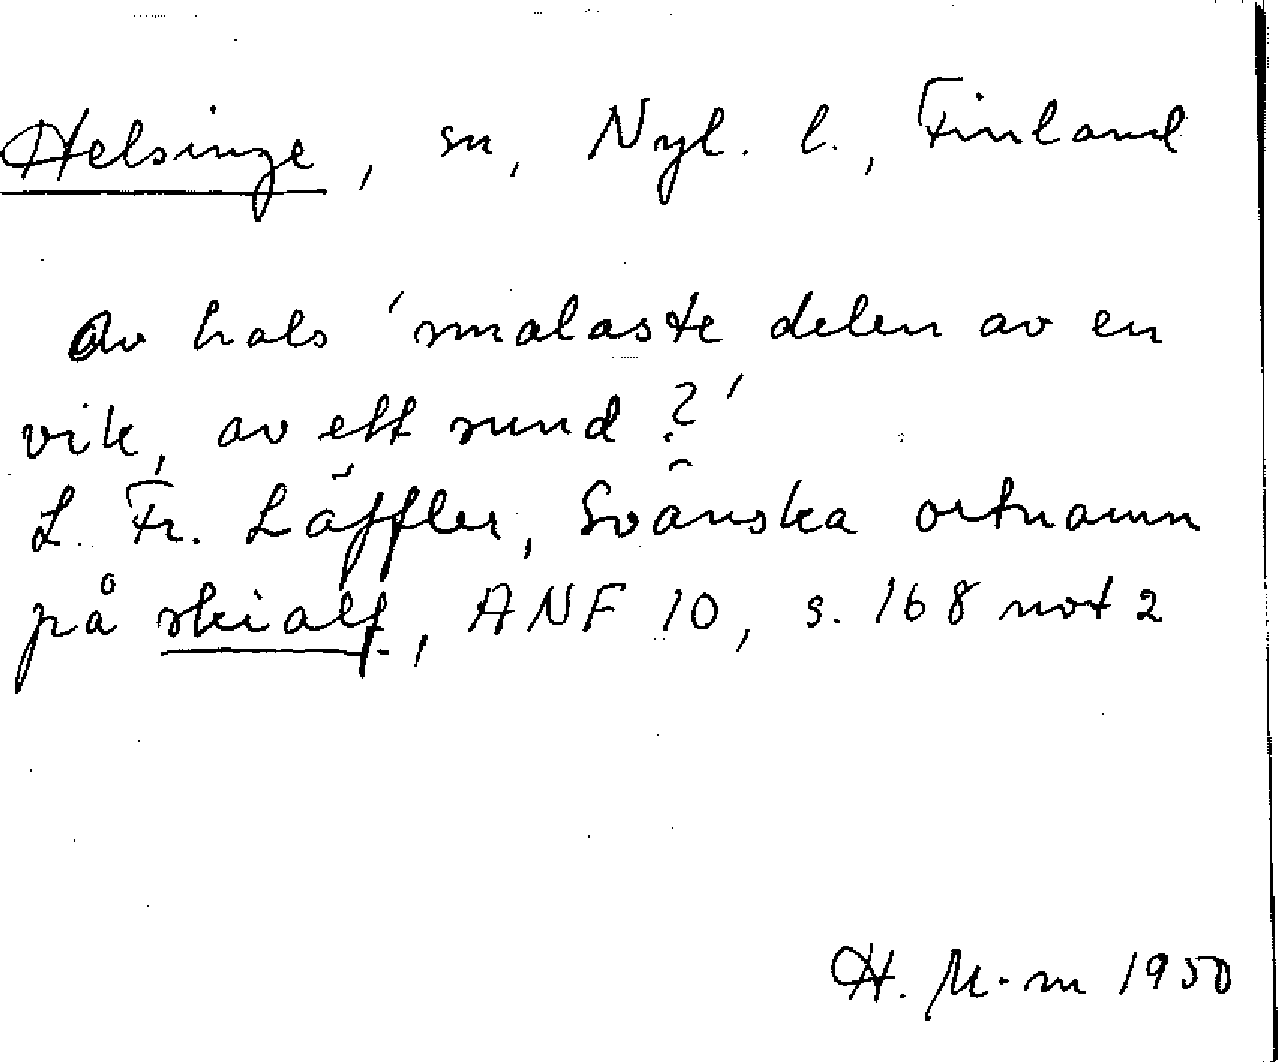 Helsinge, sn, Nyl. l., Finland
Av hals 'smalaste delen av en
vik, av ett sund ?'
L. Fr. Läffler, Svänska ortnamn
på skialf, ANF 10, s. 168 not 2
H. M-m 1950